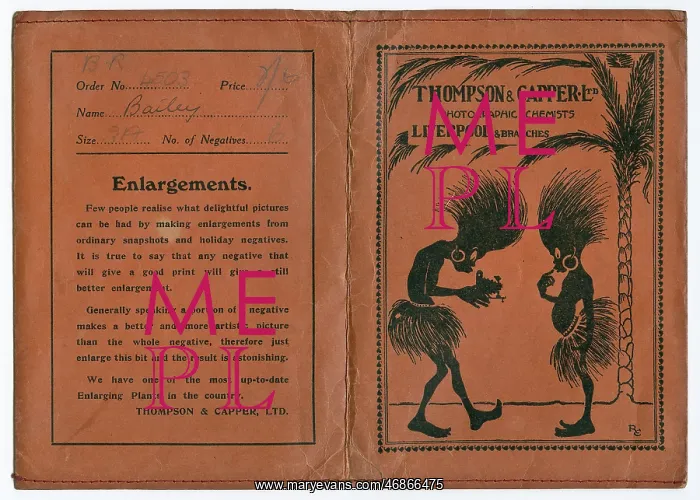 B R
Order No. 4503 Price
Name Bailey
Size 3A No. of Negatives 6
Enlargements.
Few people realise what delightful pictures
can be had by making enlargements from
ordinary snapshots and holiday negatives.
It is true to say that any negative that
will give a good print will give a still
better enlargement.
Generally speaking a portion of a negative
makes a better and more artistic picture
than the whole negative, therefore just
enlarge this bit and the result is astonishing.
We have one of the most up-to-date
Enlarging Plants in the country.
THOMPSON & CAPPER, LTD.
THOMPSON & CAPPER. LTD
PHOTOGRAPHIC CHEMISTS
LIVERPOOL & BRANCHES
RS
ME
PL
ME
PL
www.maryevans.com/46866475